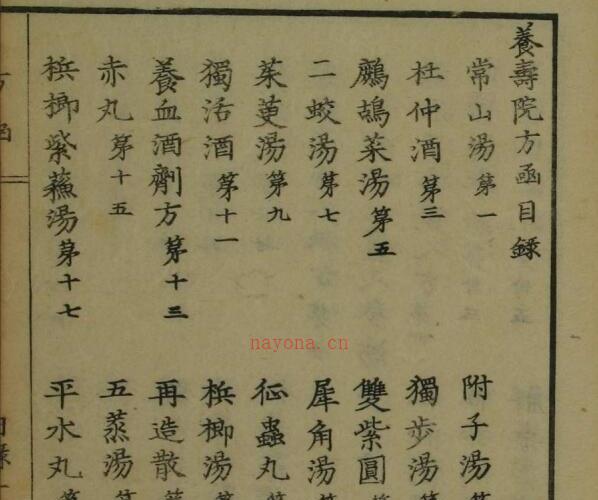 養壽院方函目錄
常山湯第一 附子湯
杜仲酒第三 獨步湯
鷓鴣菜湯第五 雙紫圓
二蛟湯第七 犀角湯
茱萸湯第九 征蟲丸
獨活酒第十一 梹榔湯
養血酒劑方第十三 再造散
赤丸第十五 五蒸湯
梹榔紫蘓湯第十七 平水丸
nayona.cn